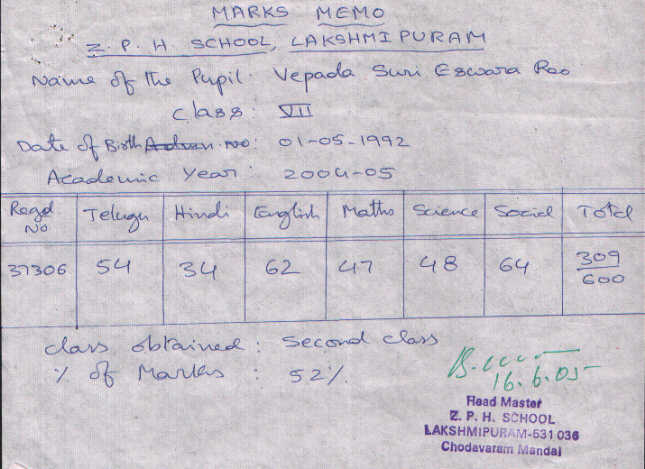 MARKS MEMO
Z. P. H. SCHOOL, LAKSHMIPURAM
Name of the Pupil: Vepada Suri Eswara Rao
Class: VII
Date of Birth no: 01-05-1992
Academic Year: 2004-05
Regd No Telugu Hindi English Maths Science Social Total
37306 54 34 62 47 48 64 309/600
Class obtained: Second class
% of Marks: 52%
16.6.05
Head Master
Z. P. H. SCHOOL
LAKSHMIPURAM-531 036
Chodavaram Mandal